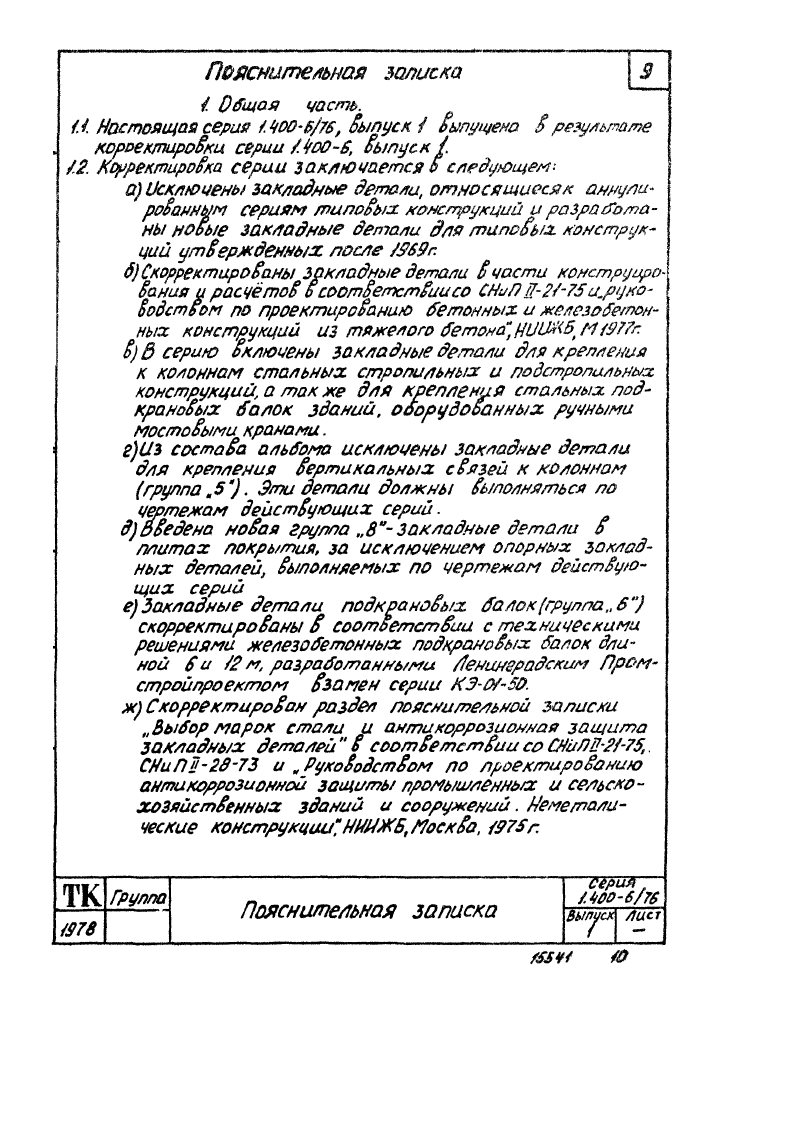 Пояснительная записка
9
1. Общая часть.
1.1. Настоящая серия 1.400-6/76, выпуск 1 выпущена в результате
корректировки серии 1.400-6, выпуск 1.
1.2. Корректировка серии заключается в следующем:
а) Исключены закладные детали, относящиеся к аннули-
рованным сериям типовых конструкций и разработа-
ны новые закладные детали для типовых конструк-
ций утвержденных после 1969г.
б) Скорректированы закладные детали в части конструиро-
вания и расчётов в соответствии со СНиП II-21-75 и „руко-
водством по проектированию бетонных и железобетон-
ных конструкций из тяжелого бетона", НИИЖБ, М 1977г.
в) В серию включены закладные детали для крепления
к колоннам стальных стропильных и подстропильных
конструкций, а так же для крепления стальных под-
крановых балок зданий, оборудованных ручными
мостовыми кранами.
г) Из состава альбома исключены закладные детали
для крепления вертикальных связей к колоннам
(группа „5"). Эти детали должны выполняться по
чертежам действующих серий.
д) Введена новая группа „8"- закладные детали в
плитах покрытия, за исключением опорных заклад-
ных деталей, выполняемых по чертежам действую-
щих серий
е) Закладные детали подкрановых балок (группа „6")
скорректированы в соответствии с техническими
решениями железобетонных подкрановых балок дли-
ной 6 и 12 м, разработанными Ленинградским Пром-
стройпроектом взамен серии КЭ-01-50.
ж) Скорректирован раздел пояснительной записки
„Выбор марок стали и антикоррозионная защита
закладных деталей" в соответствии со СНиП II-21-75,
СНиП II-28-73 и „Руководством по проектированию
антикоррозионной защиты промышленных и сельско-
хозяйственных зданий и сооружений. Неметали-
ческие конструкции", НИИЖБ, Москва, 1975г.
ТК
1978
Группа
Пояснительная записка
Серия
1.400-6/76
Выпуск Лист
1 —
15541 10